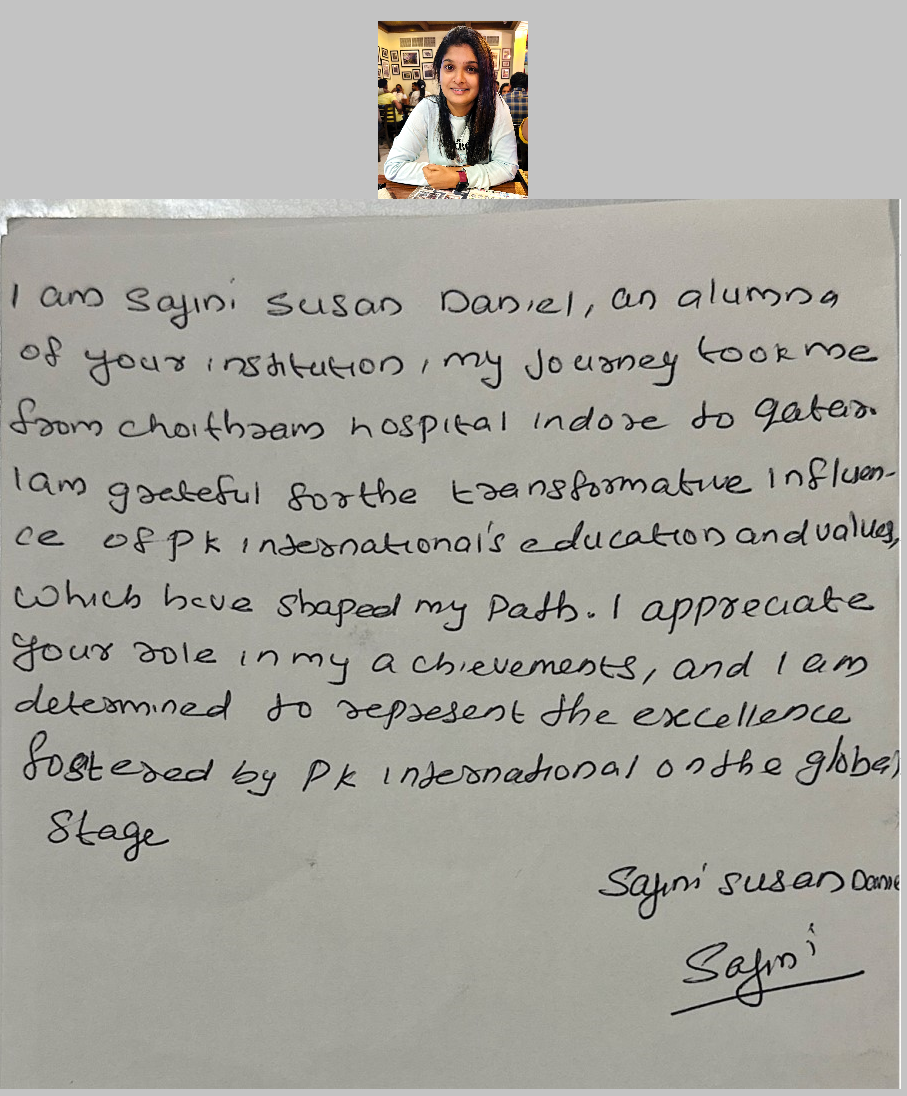 I am Sajini Susan Daniel, an alumna
of your institution, my Journey took me
from choithram hospital indore to qatar.
I am grateful for the transformative influen-
ce of PK international's education and values,
which have shaped my Path. I appreciate
your role in my achievements, and I am
determined to represent the excellence
fostered by PK international on the global
Stage
Sajini susan Danie
Sajini